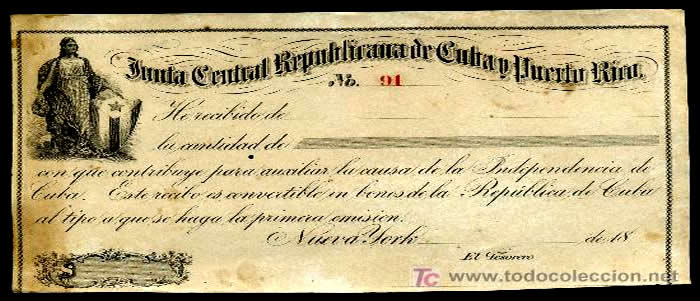 Junta Central Republicana de Cuba y Puerto Rico.
No. 91
He recibido de
la cantidad de
con que contribuye para auxiliar la causa de la Independencia de
Cuba. Este recibo es convertible en bonos de la República de Cuba
al tipo a que se haga la primera emision.
Nueva York de 18
El Tesorero
$
TC www.todocoleccion.net